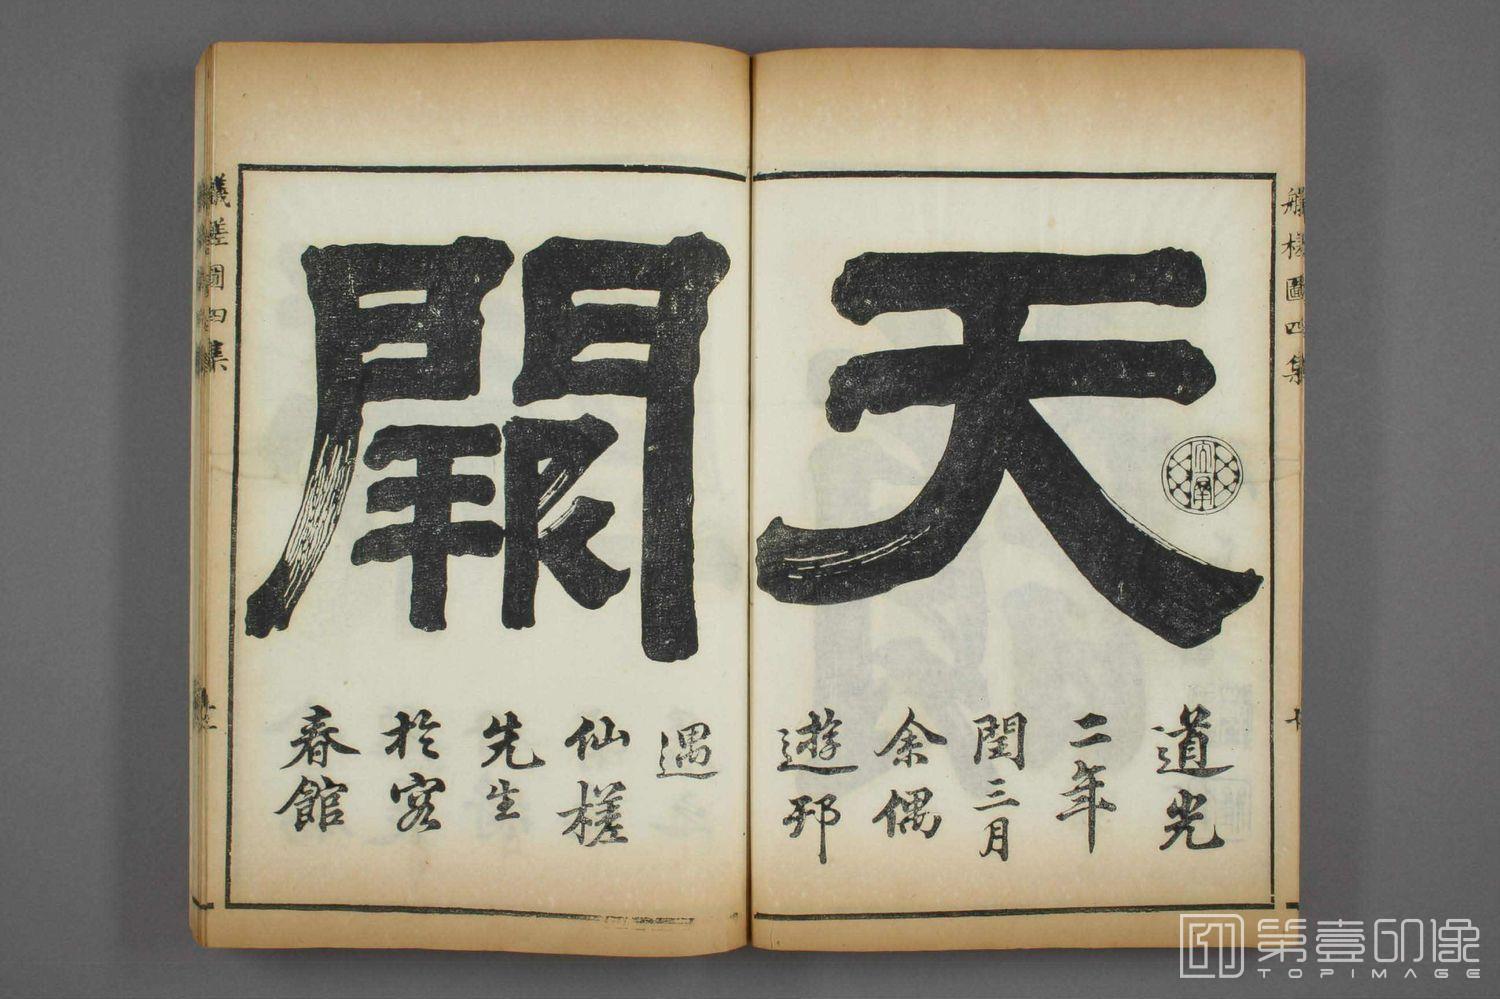 天
闕
道光
二年
閏三月
余偶
遊邗
遇
仙槎
先生
於客
春館
槎圖四集
槎圖四集
第壹印像
TOPIMAGE